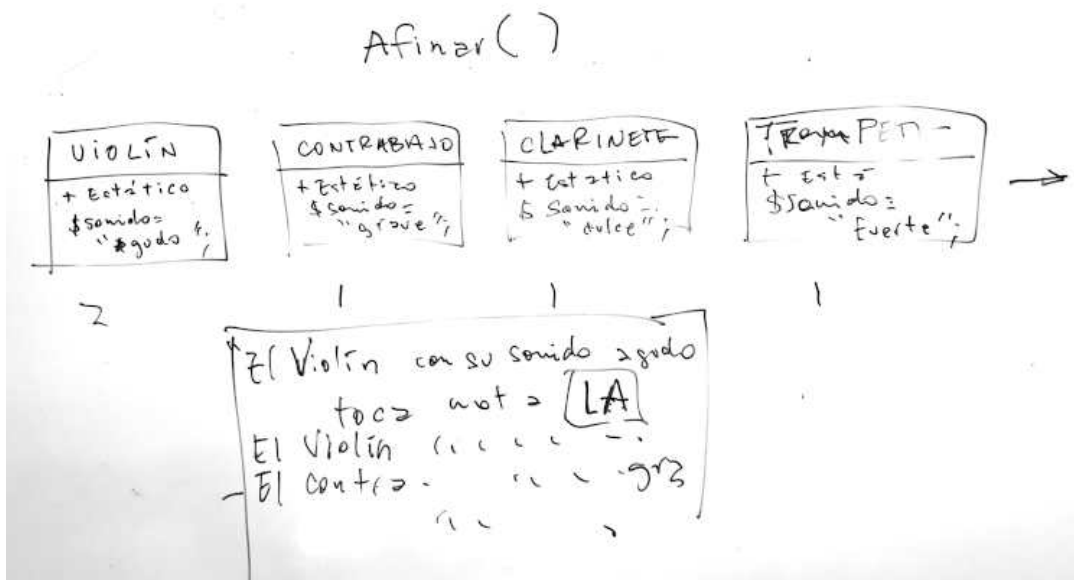 Afinar( )
VIOLÍN
+ Estático
$sonido=
"agudo";
CONTRABAJO
+ Estático
$sonido=
"grave";
CLARINETE
+ Estatico
$ Sonido=
"dulce";
+ Está
$Sonido=
"fuerte";
2
1
1
1
El Violín con su sonido agudo
toca nota LA
El Violín
El contra.